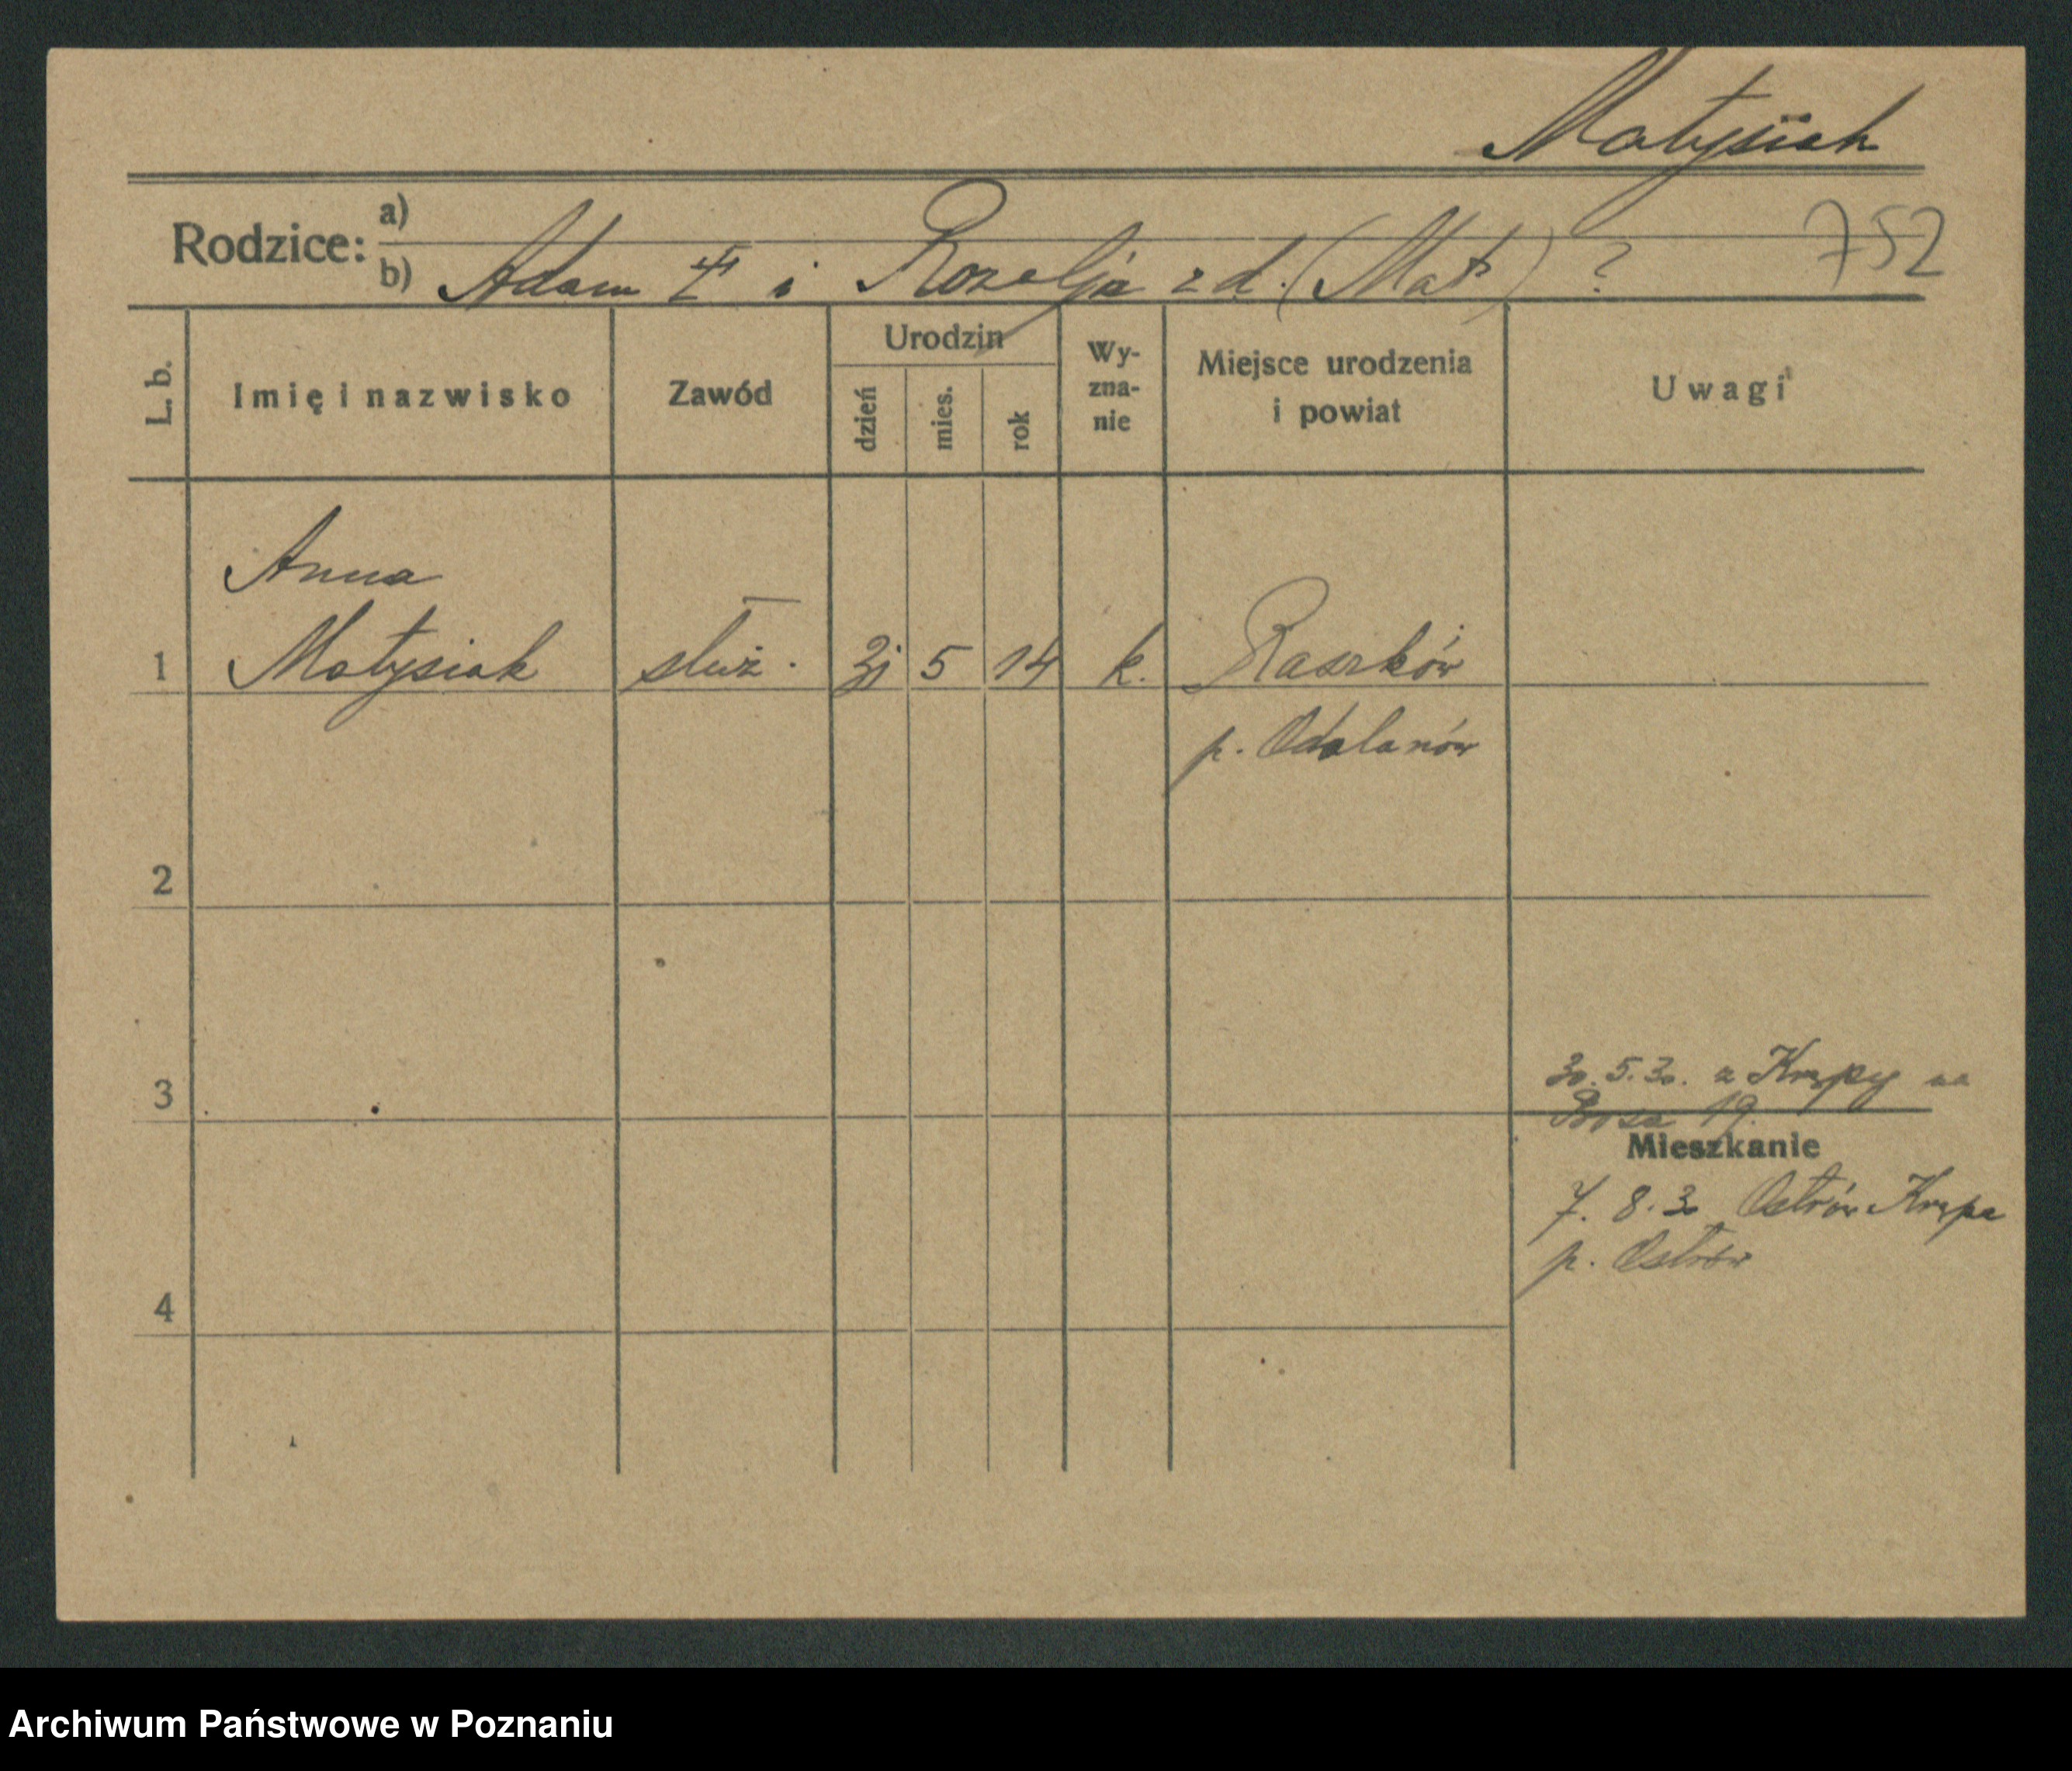 Matysiak
752
Rodzice:
a)
b) Adam i Rozalja z d. (Mat) ?
L. b.
Imię i nazwisko
Zawód
Urodzin
dzień
mies.
rok
Wy-
zna-
nie
Miejsce urodzenia
i powiat
Uwagi
Anna
1 Matysiak służ. 31 5 14 k. Raszków
p. Odolanów
2
3
30.5.30. z Krępy na
19.
Mieszkanie
7. 8. 30 Ostrów Krępa
p. Ostrów
4
Archiwum Państwowe w Poznaniu